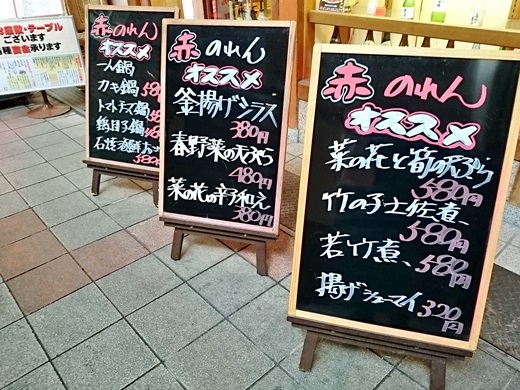 お座敷・テーブル
ございます
各種宴会承ります
赤のれん
オススメ
一人鍋
カキ鍋 580
トマトチーズ鍋
石焼海鮮
580円
赤 のれん
オススメ
釜揚げシラス
380円
春野菜の天ぷら
480円
菜の花の辛子和え
380円
赤 のれん
オススメ
菜の花と筍の天ぷら
580円
竹の子土佐煮
580円
若竹煮、
580円
揚げシューマイ 320円